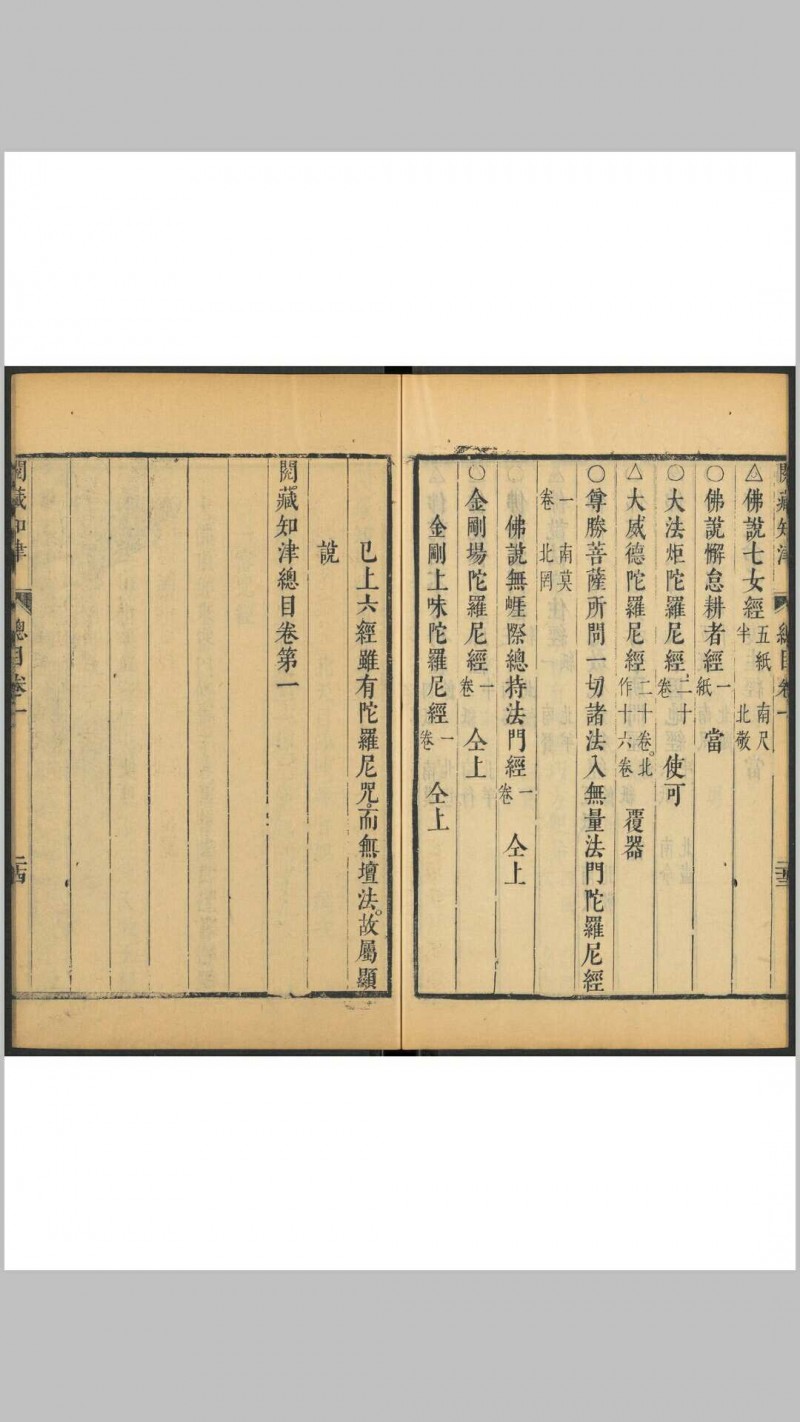 閱藏知津 總目卷一 二十三
△佛說七女經 五紙半 南尺北敬
○佛說懈怠耕者經 一紙 當
○大法炬陀羅尼經 二十卷 使可
△大威德陀羅尼經 二十卷。北作十六卷 覆器
○尊勝菩薩所問一切諸法入無量法門陀羅尼經
一卷 南莫北罔
佛說無崕際總持法門經 一卷 仝上
○金剛場陀羅尼經 一卷 仝上
金剛上味陀羅尼經 一卷 仝上
已上六經雖有陀羅尼咒。而無壇法。故屬顯
說
閱藏知津總目卷第一
閱藏知津 總目卷一 二十四